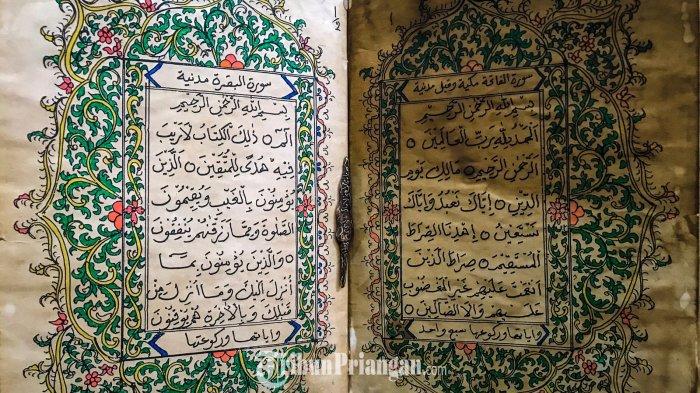 سورة الفاتحة مكية وقيل مدنية
بسم الله الرحمن الرحيم
الحمد لله رب العالمين
الرحمن الرحيم مالك يوم
الدين اياك نعبد واياك
نستعين اهدنا الصراط
المستقيم صراط الذين
انعمت عليهم غير المغضوب
عليهم ولا الضآلين
واياتها وركوعها سبع واحد
سورة البقرة مدنية
بسم الله الرحمن الرحيم
الم ذلك الكتاب لا ريب
فيه هدى للمتقين الذين
يؤمنون بالغيب ويقيمون
الصلوة ومما رزقنهم ينفقون
والذين يؤمنون بما
انزل اليك وما انزل من
قبلك وبالآخرة هم يوقنون
واياتها وركوعها
TribunPriangan.com